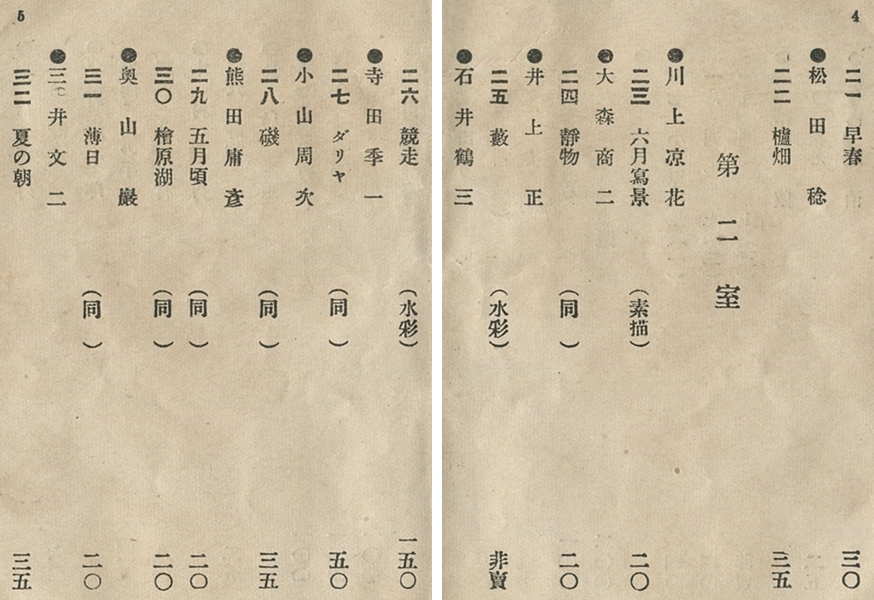 4
二一 早春 三〇
●松田稔
二二 櫨畑 三五
第二室
●川上凉花
二三 六月寫景 (素描) 二〇
●大森商二
二四 靜物 (同) 二〇
●井上正
二五 藪 (水彩) 非賣
●石井鶴三
5
二六 競走 (水彩) 一五〇
●寺田季一
二七 ダリヤ (同) 五〇
●小山周次
二八 磯 (同) 三五
●熊田庸彥
二九 五月頃 (同) 二〇
三〇 檜原湖 (同) 二〇
●奥山巖
三一 薄日 (同) 二〇
●三井文二
三二 夏の朝 三五